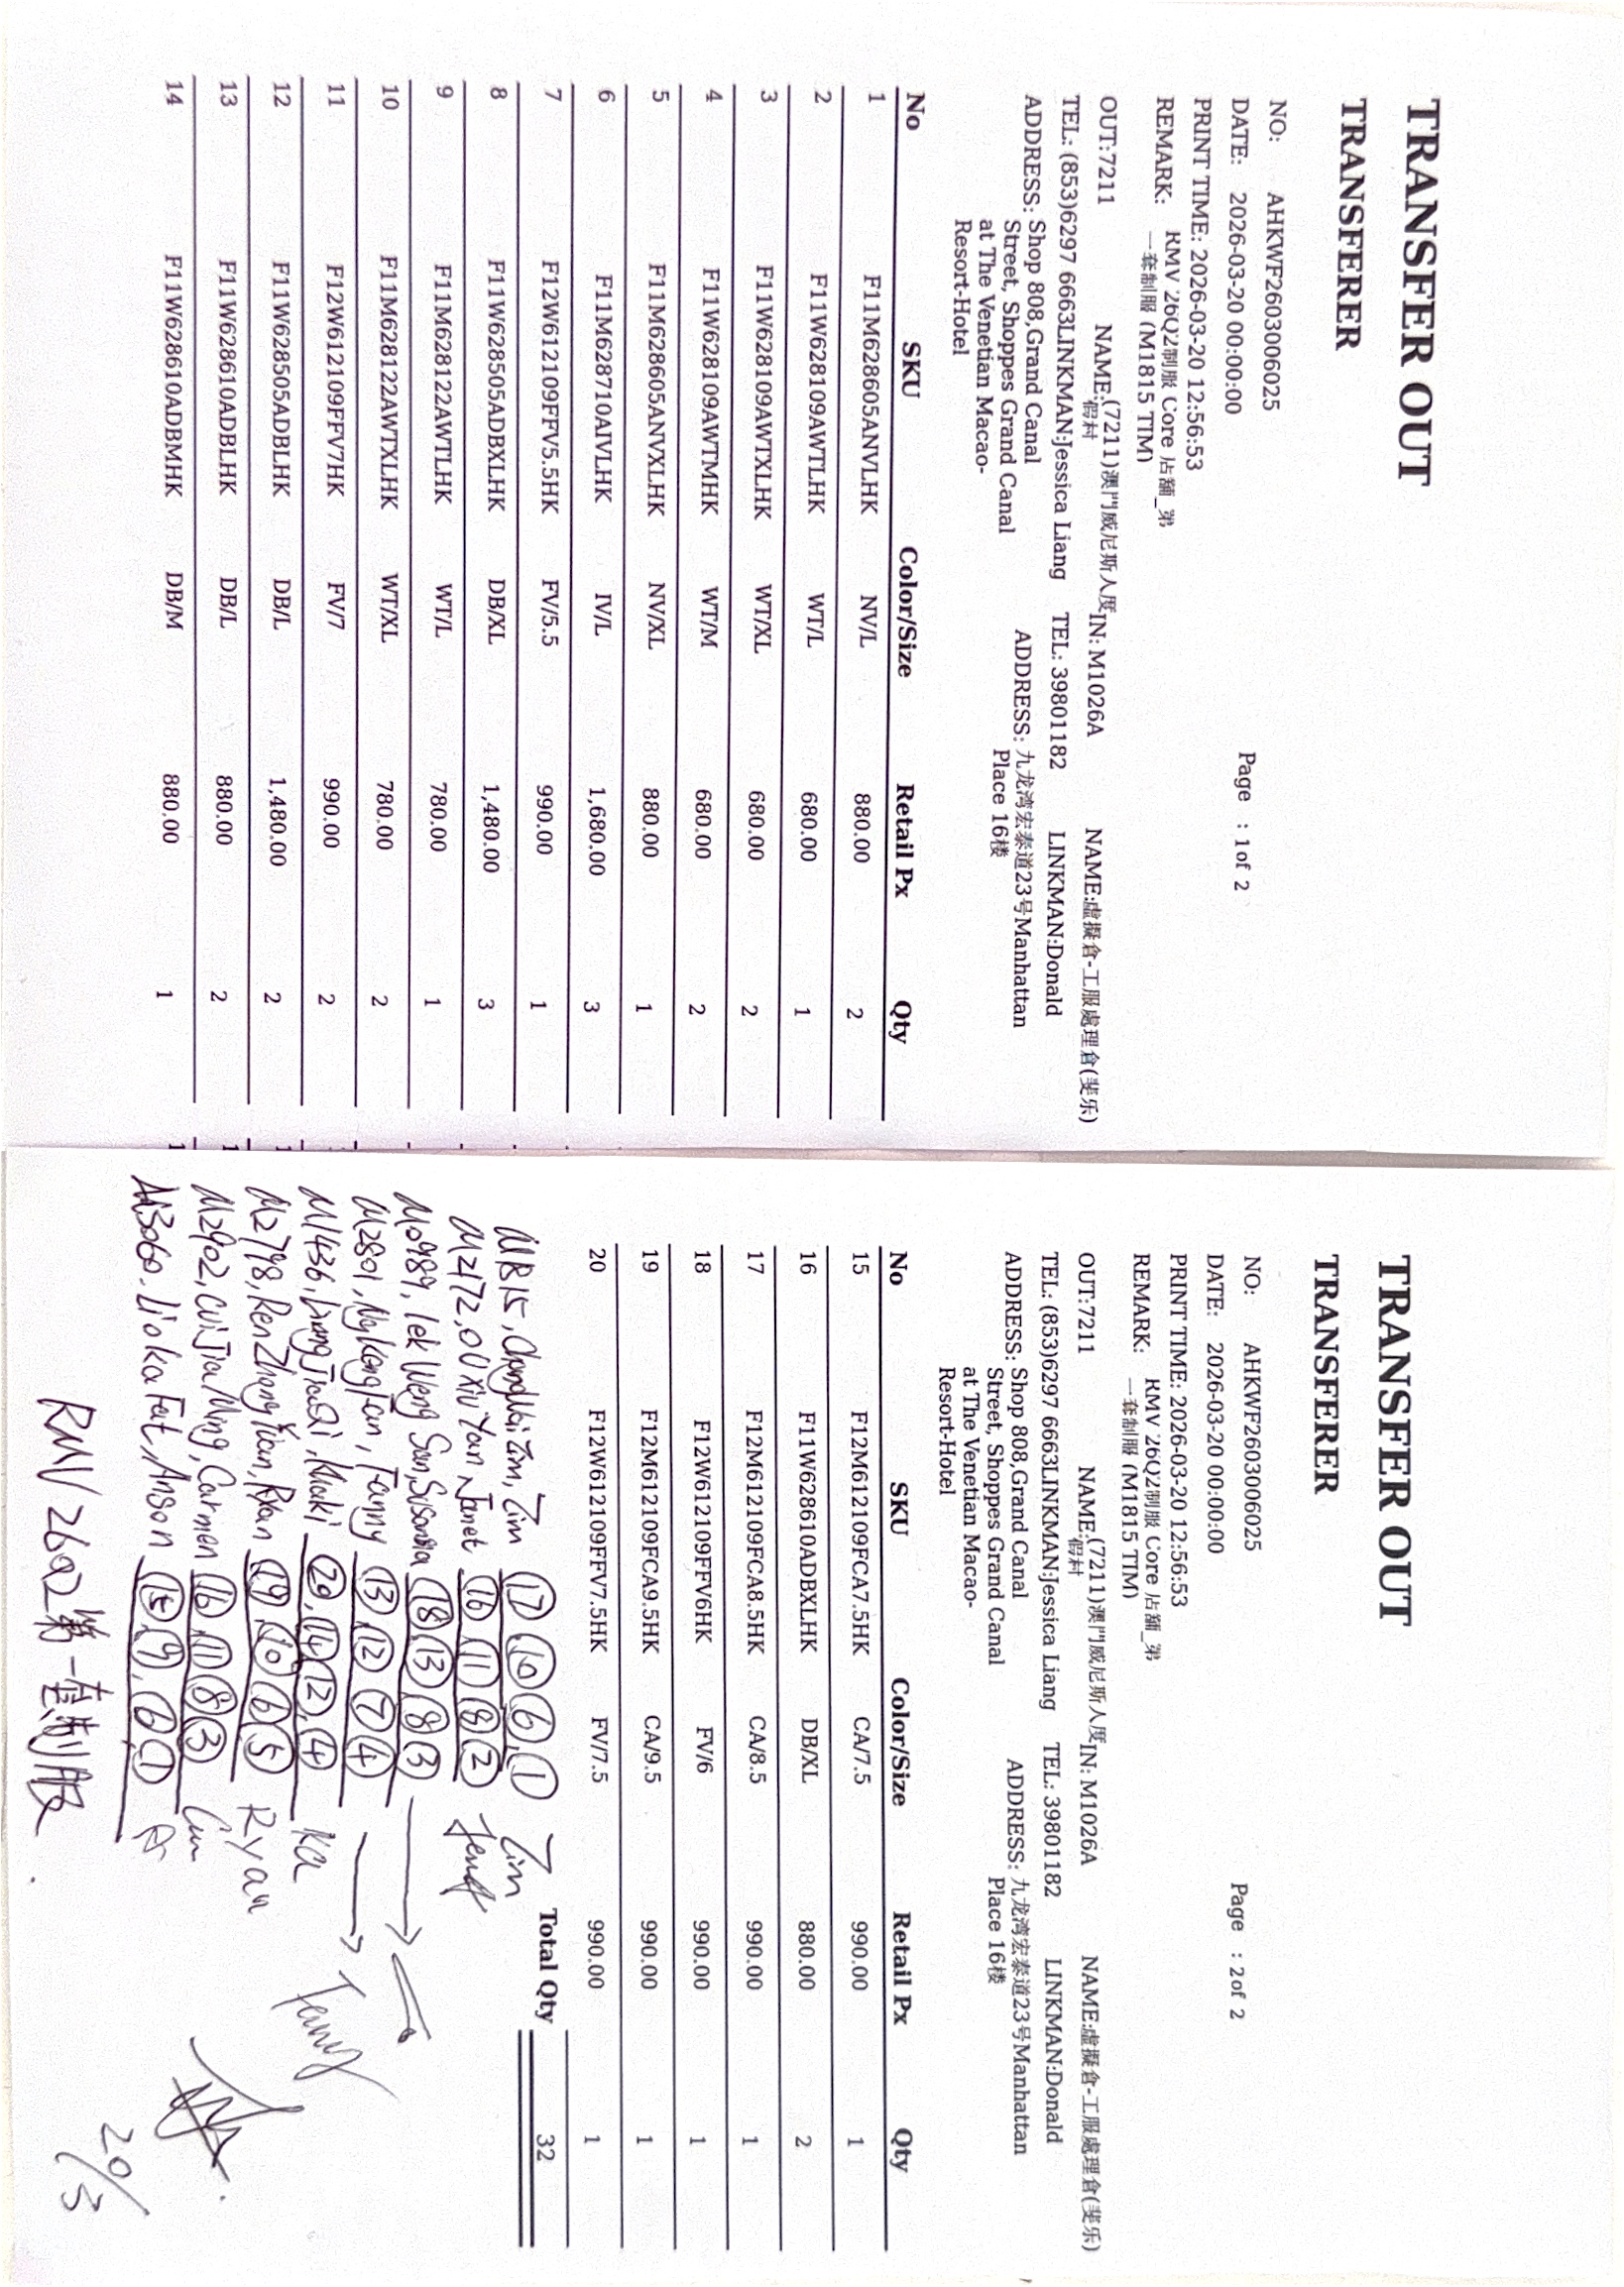 TRANSFER OUT
TRANSFERER
NO: AHKWF2603006025
DATE: 2026-03-20 00:00:00
Page : 1of 2
PRINT TIME: 2026-03-20 12:56:53
REMARK: RMV '26Q2制服 Core 店舖_第
一套制服 (M1815 TIM)
OUT:7211 NAME:(7211)澳門威尼斯人度假村 IN: M1026A NAME:虛擬倉-工服處理倉(斐乐)
TEL: (853)6297 6663LINKMAN:Jessica Liang TEL: 39801182 LINKMAN:Donald
ADDRESS: Shop 808,Grand Canal ADDRESS: 九龙湾宏泰道23号Manhattan
Street, Shoppes Grand Canal Place 16楼
at The Venetian Macao-
Resort-Hotel
No SKU Color/Size Retail Px Qty
1 F11M628605ANVLHK NV/L 880.00 2
2 F11W628109AWTLHK WT/L 680.00 1
3 F11W628109AWTXLHK WT/XL 680.00 2
4 F11W628109AWTMHK WT/M 680.00 2
5 F11M628605ANVXLHK NV/XL 880.00 1
6 F11M628710AIVLHK IV/L 1,680.00 3
7 F12W612109FFV5.5HK FV/5.5 990.00 1
8 F11W628505ADBXLHK DB/XL 1,480.00 3
9 F11M628122AWTLHK WT/L 780.00 1
10 F11M628122AWTXLHK WT/XL 780.00 2
11 F12W612109FFV7HK FV/7 990.00 2
12 F11W628505ADBLHK DB/L 1,480.00 2
13 F11W628610ADBLHK DB/L 880.00 2
14 F11W628610ADBMHK DB/M 880.00 1
TRANSFER OUT
TRANSFERER
NO: AHKWF2603006025
DATE: 2026-03-20 00:00:00
Page : 2of 2
PRINT TIME: 2026-03-20 12:56:53
REMARK: RMV '26Q2制服 Core 店舖_第
一套制服 (M1815 TIM)
OUT:7211 NAME:(7211)澳門威尼斯人度假村 IN: M1026A NAME:虛擬倉-工服處理倉(斐乐)
TEL: (853)6297 6663LINKMAN:Jessica Liang TEL: 39801182 LINKMAN:Donald
ADDRESS: Shop 808,Grand Canal ADDRESS: 九龙湾宏泰道23号Manhattan
Street, Shoppes Grand Canal Place 16楼
at The Venetian Macao-
Resort-Hotel
No SKU Color/Size Retail Px Qty
15 F12M612109FCA7.5HK CA/7.5 990.00 1
16 F11W628610ADBXLHK DB/XL 880.00 2
17 F12M612109FCA8.5HK CA/8.5 990.00 1
18 F12W612109FFV6HK FV/6 990.00 1
19 F12M612109FCA9.5HK CA/9.5 990.00 1
20 F12W612109FFV7.5HK FV/7.5 990.00 1
Total Qty 32
M1815, Chong Wai Tim, Tim ⑰ ⑩ ⑥ ① Tim
M2172, OU Xiu Yan Janet ⑯ ⑪ ⑧ ②
M0989, Iek Weng San, Susanna ⑱ ⑬ ⑧ ③
M2801, Ng Kong Fan, Fanny ⑬ ⑫ ⑦ ④ Fanny
M1436, Liang JiaQi, Kaki ⑳, ⑭ ⑫, ④ Ka
M2798, Ren Zhang Yuan, Ryan ⑲, ⑩ ⑥ ⑤ Ryan
M2902, Cui Jia Ming, Carmen ⑯ ⑪ ⑧ ③
M3060. Lio Ka Fat, Anson ⑮, ⑨, ⑥, ①
RMV 26Q2第一套制服.
20/3